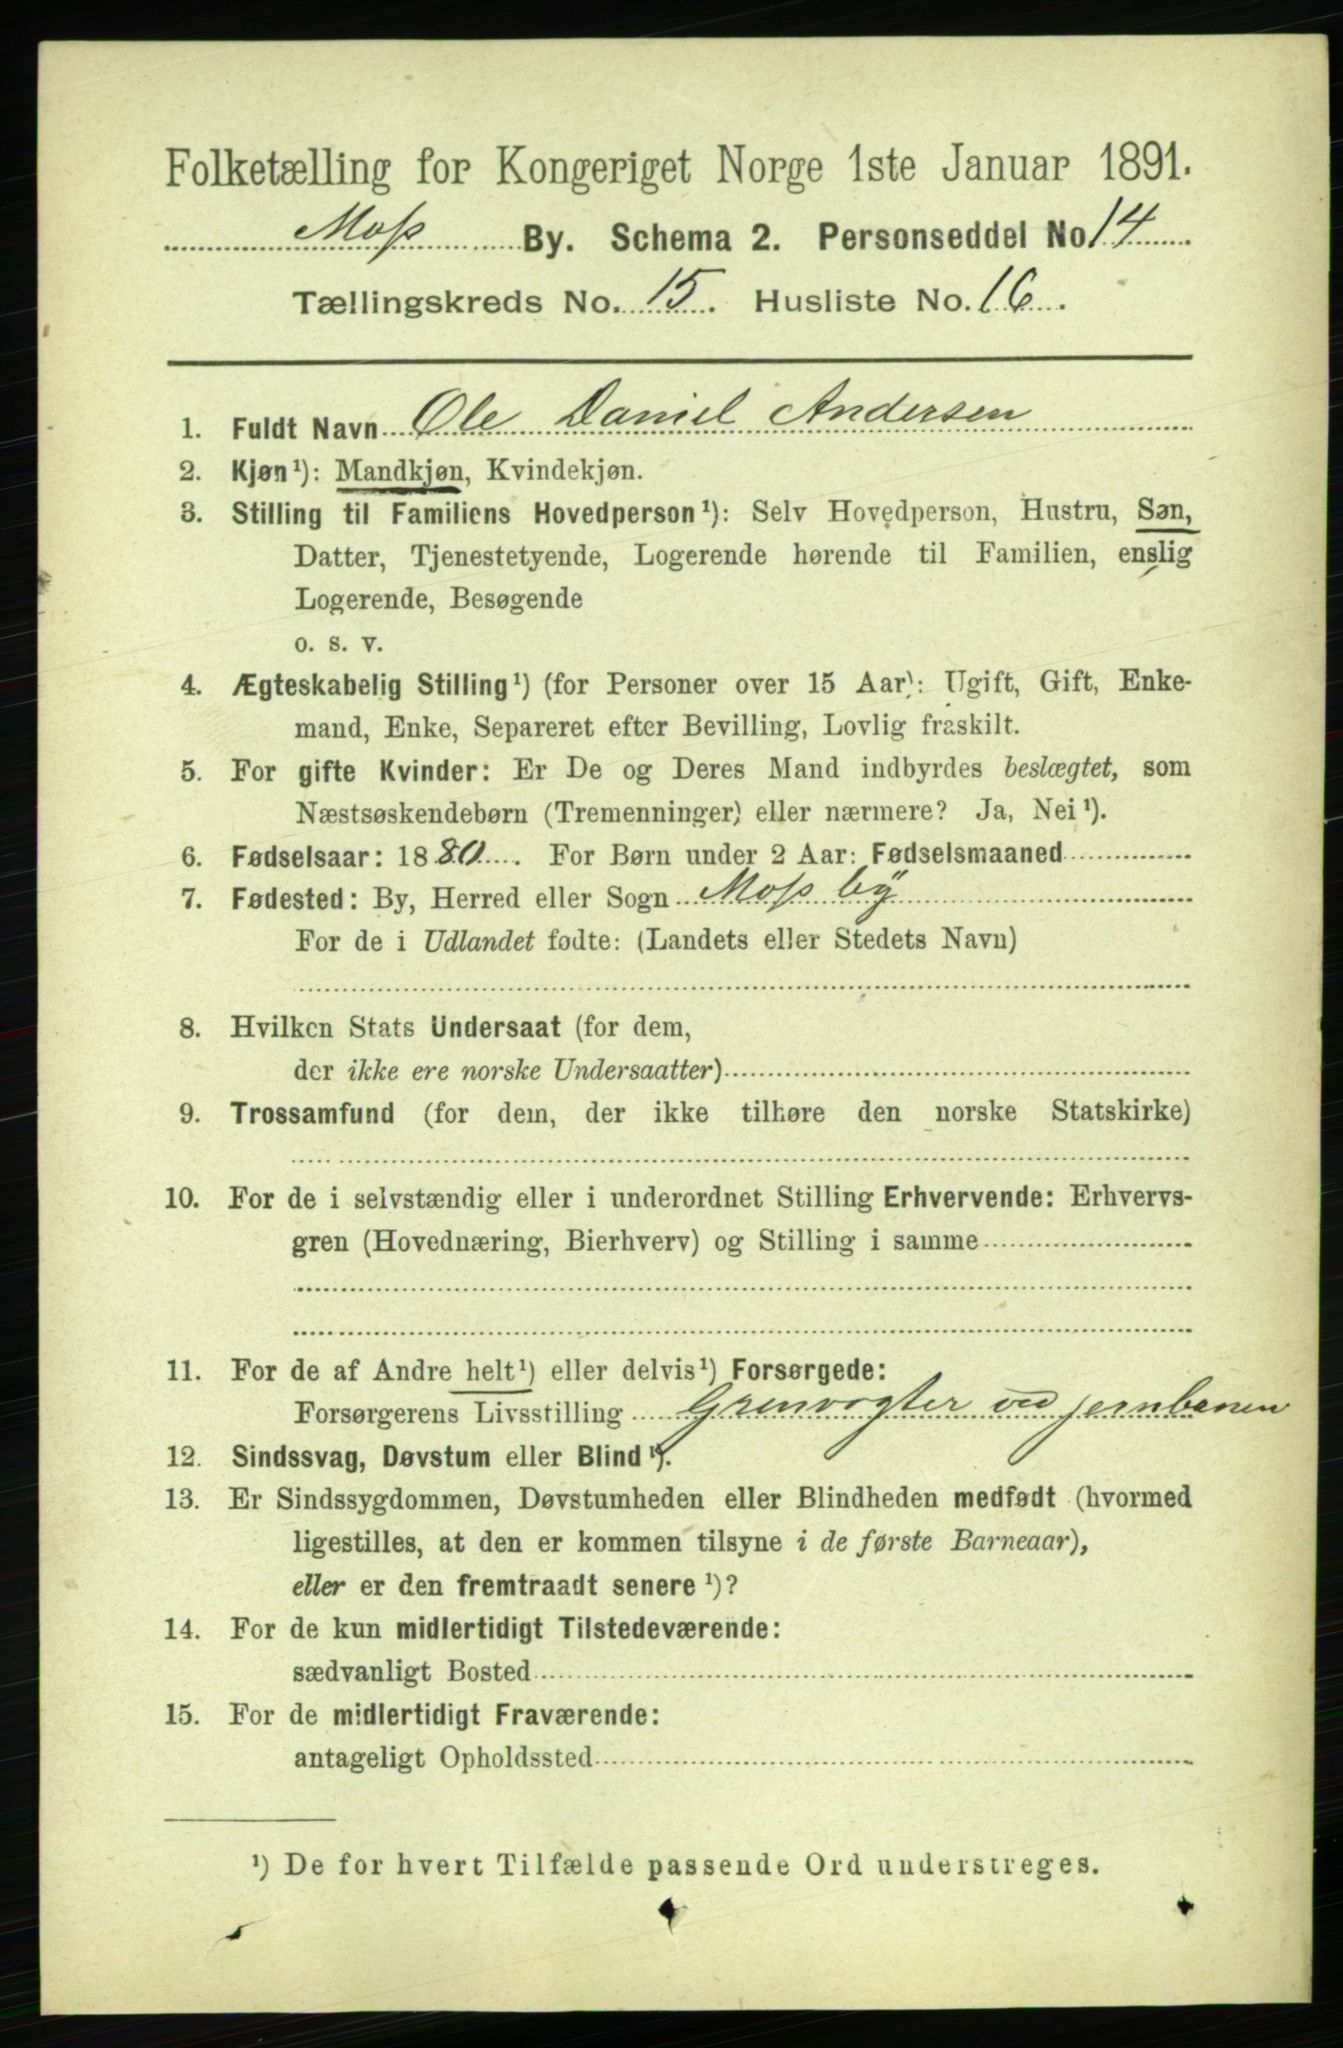 Folketælling for Kongeriget Norge 1ste Januar 1891.
Moss By. Schema 2. Personseddel No 14
Tællingskreds No. 15. Husliste No. 16.
1. Fuldt Navn Ole Daniel Andersen
2. Kjøn¹): Mandkjøn, Kvindekjøn.
3. Stilling til Familiens Hovedperson¹): Selv Hovedperson, Hustru, Søn,
Datter, Tjenestetyende, Logerende hørende til Familien, enslig
Logerende, Besøgende
o. s. v.
4. Ægteskabelig Stilling¹) (for Personer over 15 Aar): Ugift, Gift, Enke-
mand, Enke, Separeret efter Bevilling, Lovlig fraskilt.
5. For gifte Kvinder: Er De og Deres Mand indbyrdes beslægtet, som
Næstsøskendebørn (Tremenninger) eller nærmere? Ja, Nei¹).
6. Fødselsaar: 1880. For Børn under 2 Aar: Fødselsmaaned
7. Fødested: By, Herred eller Sogn Moss by
For de i Udlandet fødte: (Landets eller Stedets Navn)
8. Hvilken Stats Undersaat (for dem,
der ikke ere norske Undersaatter)
9. Trossamfund (for dem, der ikke tilhøre den norske Statskirke)
10. For de i selvstændig eller i underordnet Stilling Erhvervende: Erhvervs-
gren (Hovednæring, Bierhverv) og Stilling i samme
11. For de af Andre helt¹) eller delvis¹) Forsørgede:
Forsørgerens Livsstilling Grenvogter ved jernbanen
12. Sindssvag, Døvstum eller Blind¹).
13. Er Sindssygdommen, Døvstumheden eller Blindheden medfødt (hvormed
ligestilles, at den er kommen tilsyne i de første Barneaar),
eller er den fremtraadt senere¹)?
14. For de kun midlertidigt Tilstedeværende:
sædvanligt Bosted
15. For de midlertidigt Fraværende:
antageligt Opholdssted
¹) De for hvert Tilfælde passende Ord understreges.